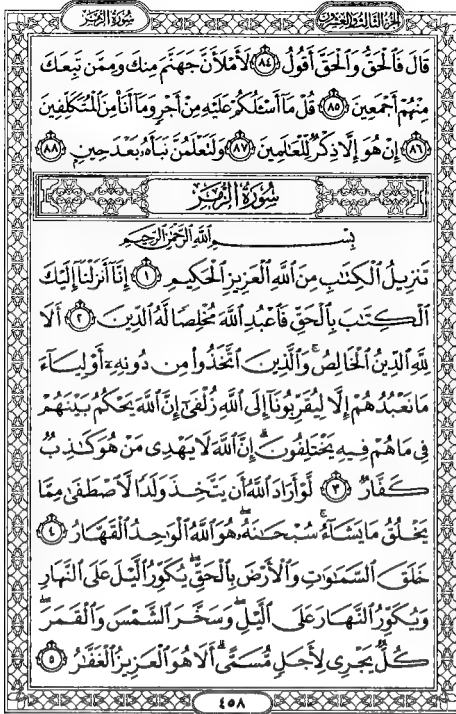 الجزء الثالث والعشرون
سُورَةُ الزُّمَرِ
قَالَ فَٱلْحَقُّ وَٱلْحَقَّ أَقُولُ ٨٤ لَأَمْلَأَنَّ جَهَنَّمَ مِنكَ وَمِمَّن تَبِعَكَ
مِنْهُمْ أَجْمَعِينَ ٨٥ قُلْ مَآ أَسْـَٔلُكُمْ عَلَيْهِ مِنْ أَجْرٍ وَمَآ أَنَا۠ مِنَ ٱلْمُتَكَلِّفِينَ
٨٦ إِنْ هُوَ إِلَّا ذِكْرٌ لِّلْعَـٰلَمِينَ ٨٧ وَلَتَعْلَمُنَّ نَبَأَهُۥ بَعْدَ حِينٍۭ ٨٨
سُورَةُ الزُّمَرِ
بِسْمِ ٱللَّهِ ٱلرَّحْمَـٰنِ ٱلرَّحِيمِ
تَنزِيلُ ٱلْكِتَـٰبِ مِنَ ٱللَّهِ ٱلْعَزِيزِ ٱلْحَكِيمِ ١ إِنَّآ أَنزَلْنَآ إِلَيْكَ
ٱلْكِتَـٰبَ بِٱلْحَقِّ فَٱعْبُدِ ٱللَّهَ مُخْلِصًا لَّهُ ٱلدِّينَ ٢ أَلَا
لِلَّهِ ٱلدِّينُ ٱلْخَالِصُ ۚ وَٱلَّذِينَ ٱتَّخَذُوا۟ مِن دُونِهِۦٓ أَوْلِيَآءَ
مَا نَعْبُدُهُمْ إِلَّا لِيُقَرِّبُونَآ إِلَى ٱللَّهِ زُلْفَىٰٓ إِنَّ ٱللَّهَ يَحْكُمُ بَيْنَهُمْ
فِى مَا هُمْ فِيهِ يَخْتَلِفُونَ ۗ إِنَّ ٱللَّهَ لَا يَهْدِى مَنْ هُوَ كَـٰذِبٌ
كَفَّارٌ ٣ لَّوْ أَرَادَ ٱللَّهُ أَن يَتَّخِذَ وَلَدًا لَّٱصْطَفَىٰ مِمَّا
يَخْلُقُ مَا يَشَآءُ ۚ سُبْحَـٰنَهُۥ ۖ هُوَ ٱللَّهُ ٱلْوَٰحِدُ ٱلْقَهَّارُ ٤
خَلَقَ ٱلسَّمَـٰوَٰتِ وَٱلْأَرْضَ بِٱلْحَقِّ ۖ يُكَوِّرُ ٱلَّيْلَ عَلَى ٱلنَّهَارِ
وَيُكَوِّرُ ٱلنَّهَارَ عَلَى ٱلَّيْلِ ۖ وَسَخَّرَ ٱلشَّمْسَ وَٱلْقَمَرَ ۖ
كُلٌّ يَجْرِى لِأَجَلٍ مُّسَمًّى ۗ أَلَا هُوَ ٱلْعَزِيزُ ٱلْغَفَّـٰرُ ٥
٤٥٨